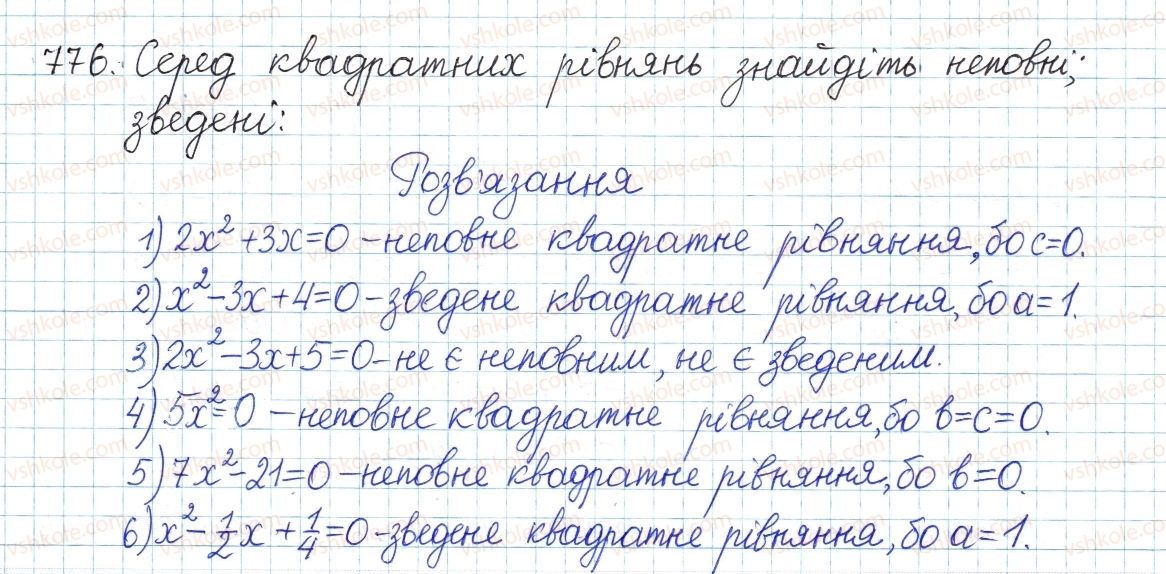 776. Серед квадратних рівнянь знайдіть неповні;
зведені:
Розв'язання
1) 2x² + 3x = 0 – неповне квадратне рівняння, бо c = 0.
2) x² – 3x + 4 = 0 – зведене квадратне рівняння, бо a = 1.
3) 2x² – 3x + 5 = 0 – не є неповним, не є зведеним.
4) 5x² = 0 – неповне квадратне рівняння, бо b = c = 0.
5) 7x² – 21 = 0 – неповне квадратне рівняння, бо b = 0.
6) x² – 1/2 x + 1/4 = 0 – зведене квадратне рівняння, бо a = 1.